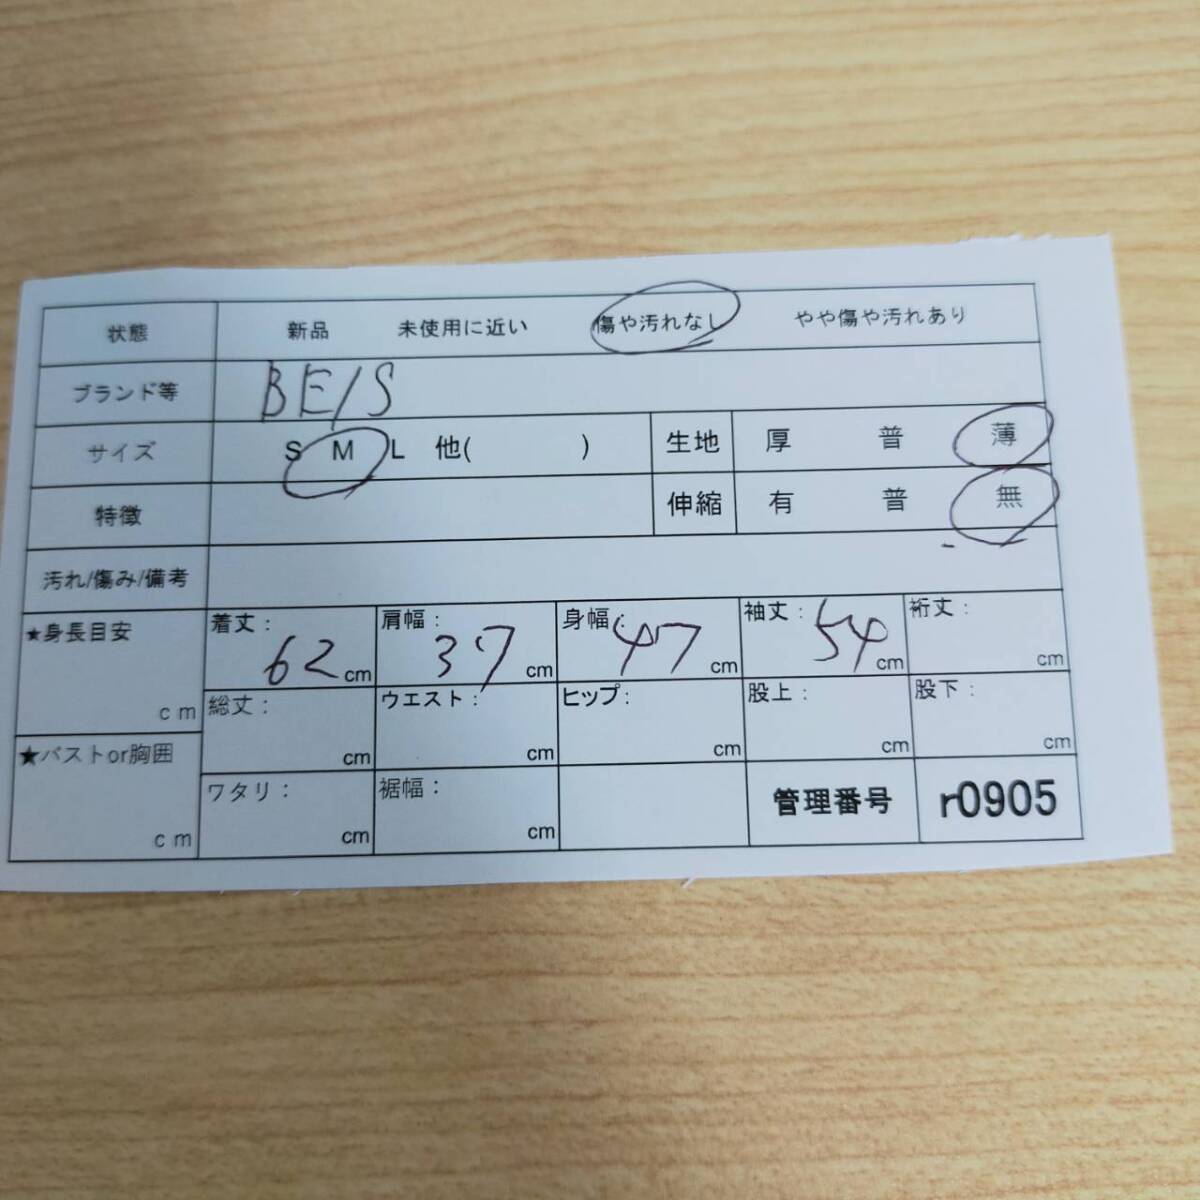 状態 新品 未使用に近い 傷や汚れなし やや傷や汚れあり
ブランド等 BE/S
サイズ S M L 他( ) 生地 厚 普 薄
特徴 伸縮 有 普 無
汚れ/傷み/備考
★身長目安 cm
着丈: 62cm 肩幅: 37cm 身幅: 47cm 袖丈: 54cm 裄丈: cm
総丈: cm ウエスト: cm ヒップ: cm 股上: cm 股下: cm
★バストor胸囲 cm
ワタリ: cm 裾幅: cm 管理番号 r0905